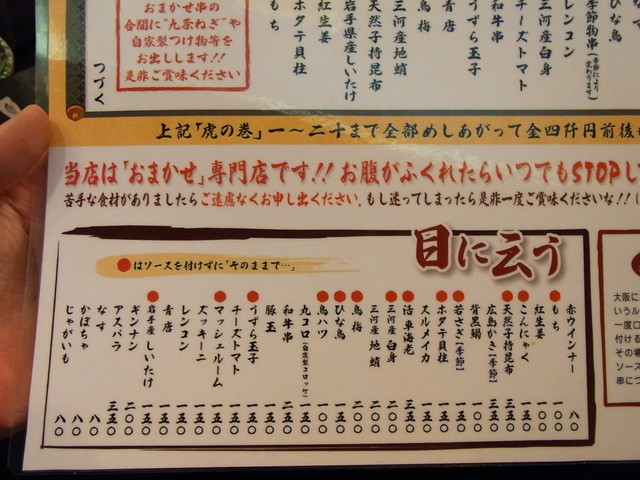 ひな鳥
季節物串(季節により変わります)
レンコン
三河産白身
チーズトマト
和牛串
うずら玉子
青唐
鳥梅
三河産地蛸
天然子持昆布
岩手県産しいたけ
紅生姜
ホタテ貝柱
もち
おまかせ串の
合間に"九条ねぎ"や
自家製つけ物等を
お出しします!!
是非ご賞味ください
つづく
上記「虎の巻」一〜二十まで全部めしあがって金四阡円前後
当店は「おまかせ」専門店です!! お腹がふくれたらいつでもSTOPし
苦手な食材がありましたらご遠慮なくお申し出ください。もし迷ってしまったら是非一度ご賞味くださいな!!
目に云う
●はソースを付けずに「そのままで…」
赤ウインナー 八〇
もち 一〇〇
紅生姜 一〇〇
こんにゃく 一五〇
天然子持昆布 三五〇
広島かき[季節] 三五〇
背黒鰯 一〇〇
若さぎ[季節] 一五〇
ホタテ貝柱 一五〇
スルメイカ 一五〇
活車海老 三五〇
三河産白身 二〇〇
三河産地蛸 二〇〇
鳥梅 二〇〇
ひな鳥 一〇〇
鳥ハツ 一〇〇
丸コロ(自家製コロッケ) 一五〇
和牛串 二五〇
豚玉 一五〇
うずら玉子 一〇〇
チーズトマト 一五〇
マッシュルーム 一五〇
ズッキーニ 一五〇
レンコン 一五〇
青唐 一五〇
岩手産しいたけ 一五〇
ギンナン 二〇〇
アスパラ 三五〇
なす 八〇
かぼちゃ 八〇
じゃがいも 八〇
大阪に
いうル
一度口
付ける
その場
ソース
串につ